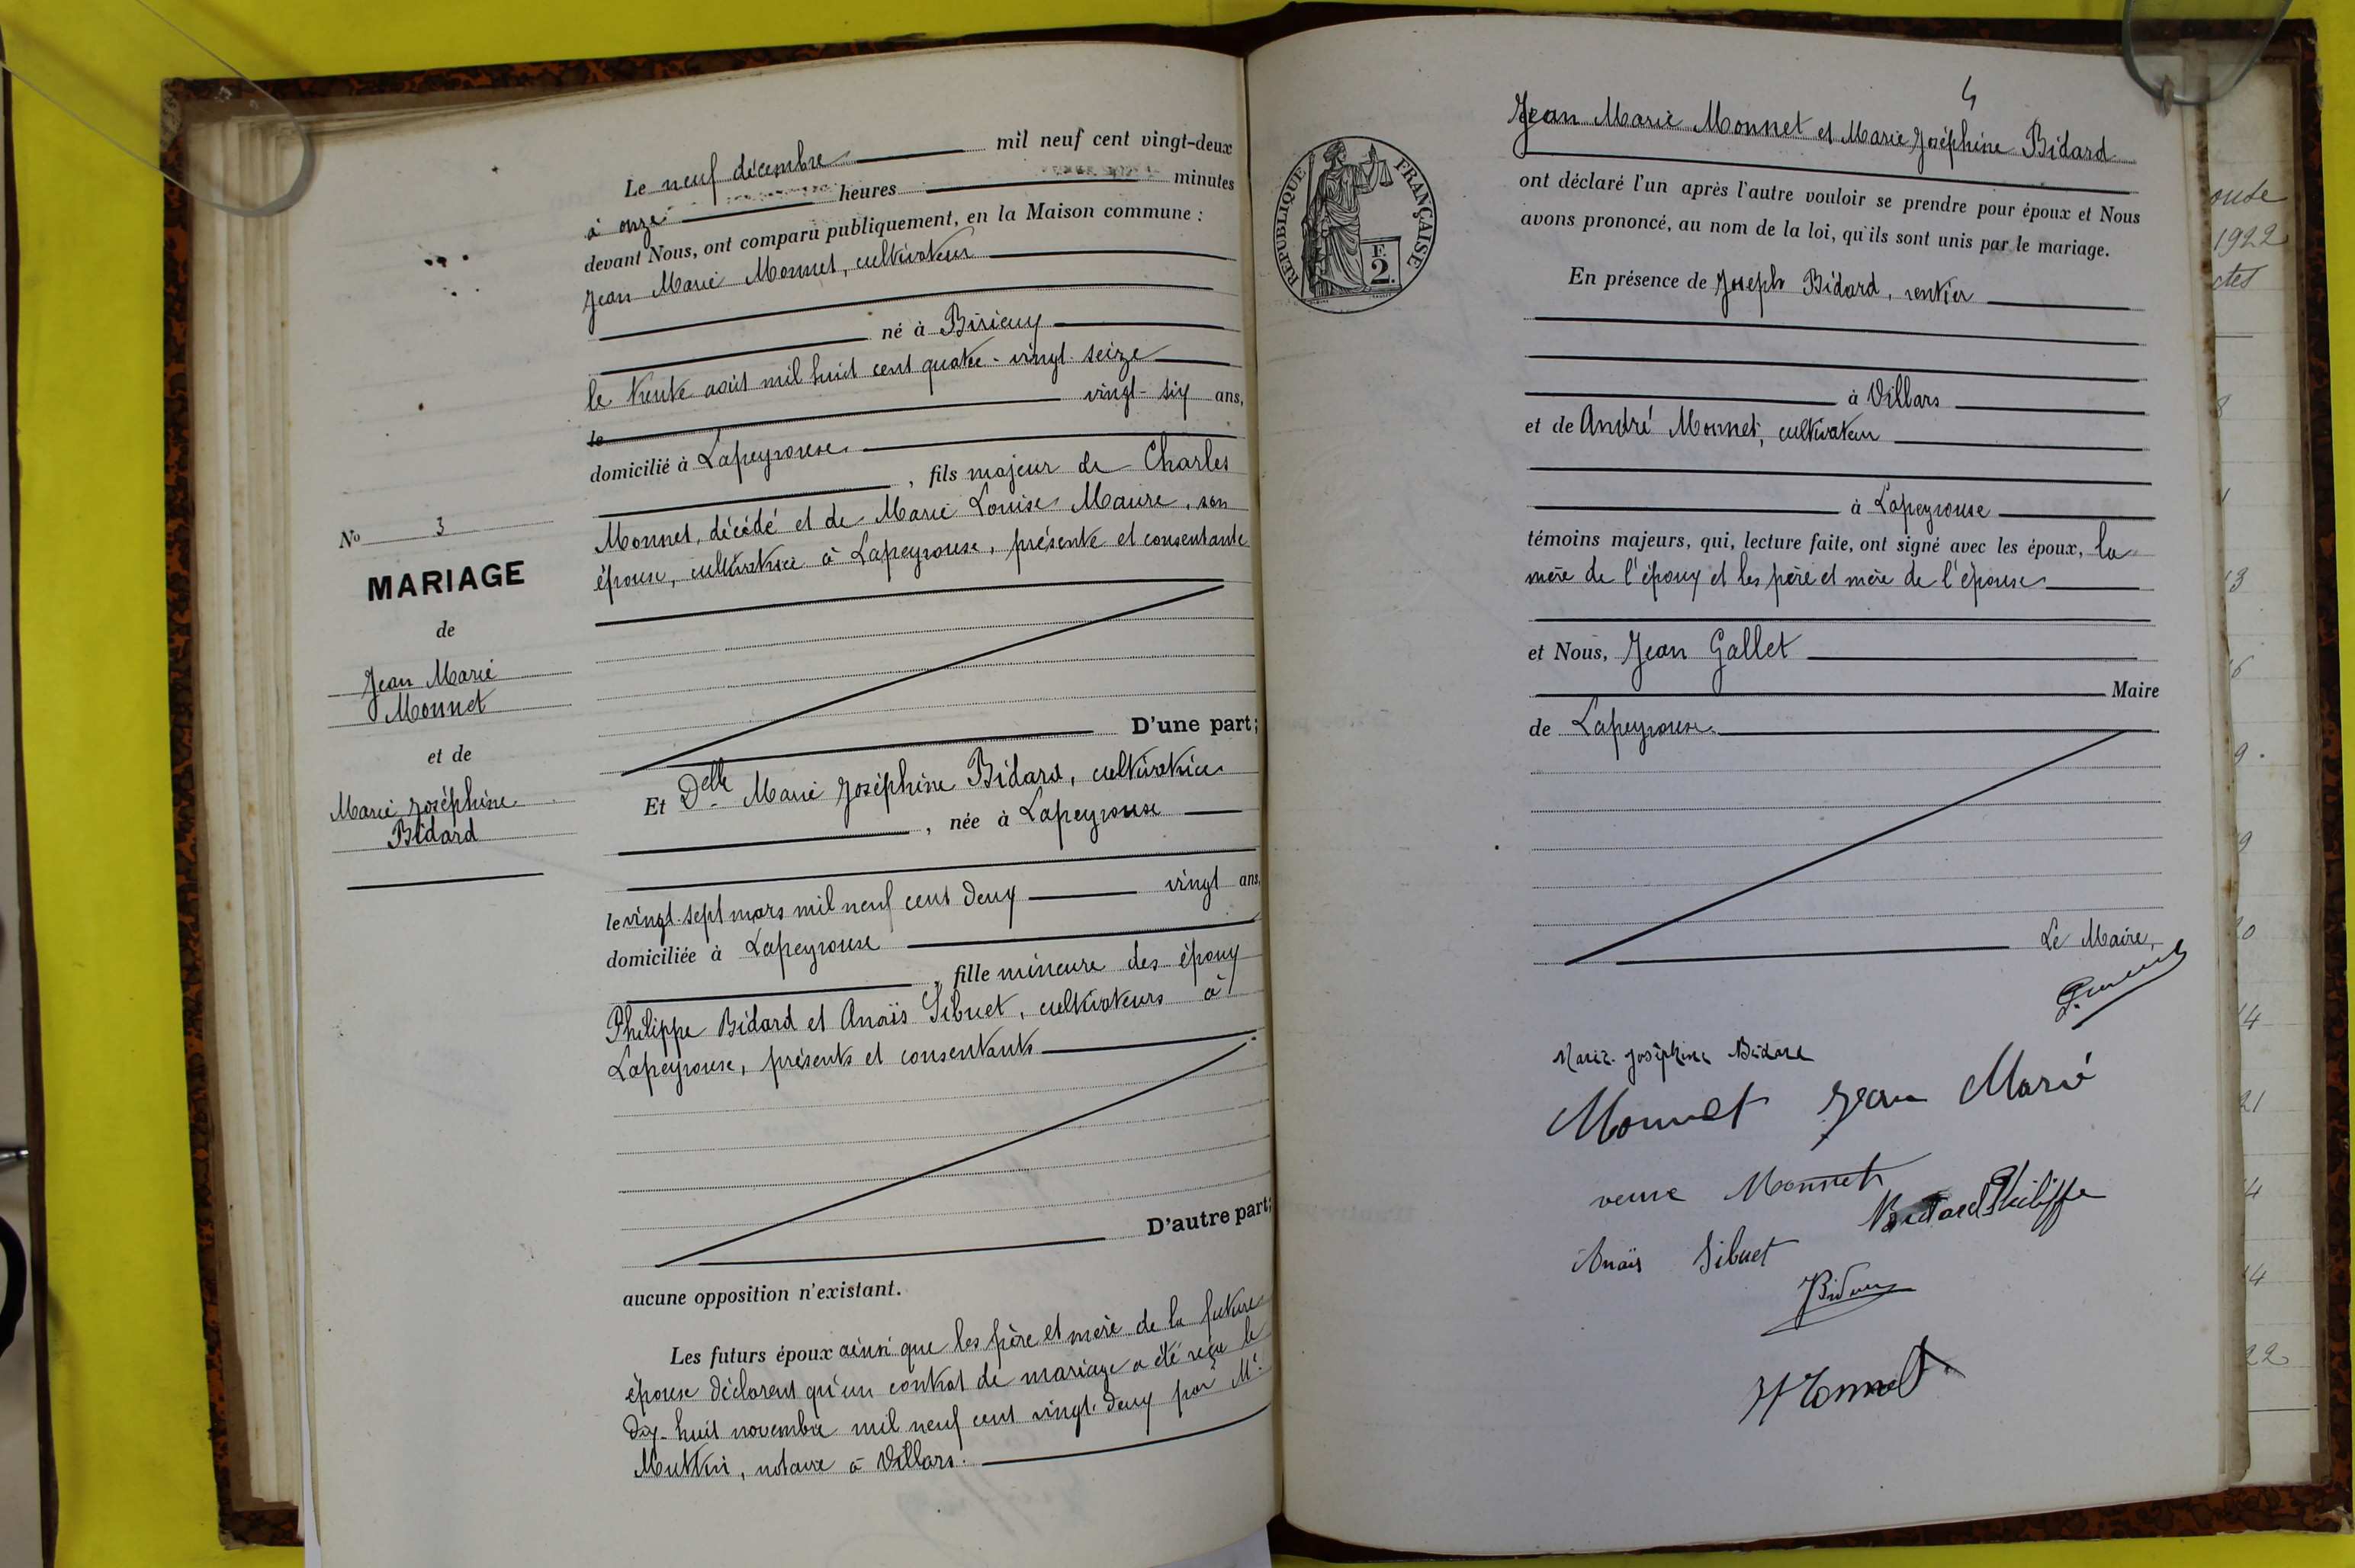 Le neuf décembre mil neuf cent vingt-deux
à onze heures minutes
devant Nous, ont comparu publiquement, en la Maison commune :
Jean Marie Monnet, cultivateur
né à Birieux
le trente août mil huit cent quatre-vingt-seize
le vingt-six ans,
domicilié à Lapeyrouse
, fils majeur de Charles
Monnet, décédé et de Marie Louise Maure, son
épouse, cultivatrice à Lapeyrouse, présente et consentante
No 3
MARIAGE
de
Jean Marie
Monnet
et de
Marie Joséphine
Bidard
D'une part;
Et Delle Marie Joséphine Bidard, cultivatrice
, née à Lapeyrouse
le vingt-sept mars mil neuf cent deux vingt ans,
domiciliée à Lapeyrouse
, fille mineure des époux
Philippe Bidard et Anaïs Sibuet, cultivateurs à
Lapeyrouse, présents et consentants
D'autre part;
aucune opposition n'existant.
Les futurs époux ainsi que les père et mère de la future
épouse déclarent qu'un contrat de mariage a été reçu le
dix-huit novembre mil neuf cent vingt-deux par Me
notaire à Villars.
4
Jean Marie Monnet et Marie Joséphine Bidard
REPUBLIQUE FRANÇAISE
F.
2.
ont déclaré l'un après l'autre vouloir se prendre pour époux et Nous
avons prononcé, au nom de la loi, qu'ils sont unis par le mariage.
En présence de Joseph Bidard, rentier
à Villars
et de André Monnet, cultivateur
à Lapeyrouse
témoins majeurs, qui, lecture faite, ont signé avec les époux, la
mère de l'époux et les père et mère de l'épouse
et Nous, Jean Gallet
Maire
de Lapeyrouse
Le Maire,
Marie-Joséphine Bidard
Monnet Jean Marie
veuve Monnet
Bidard Philippe
Anaïs Sibuet
Bidard
Monnet
1922
ctes